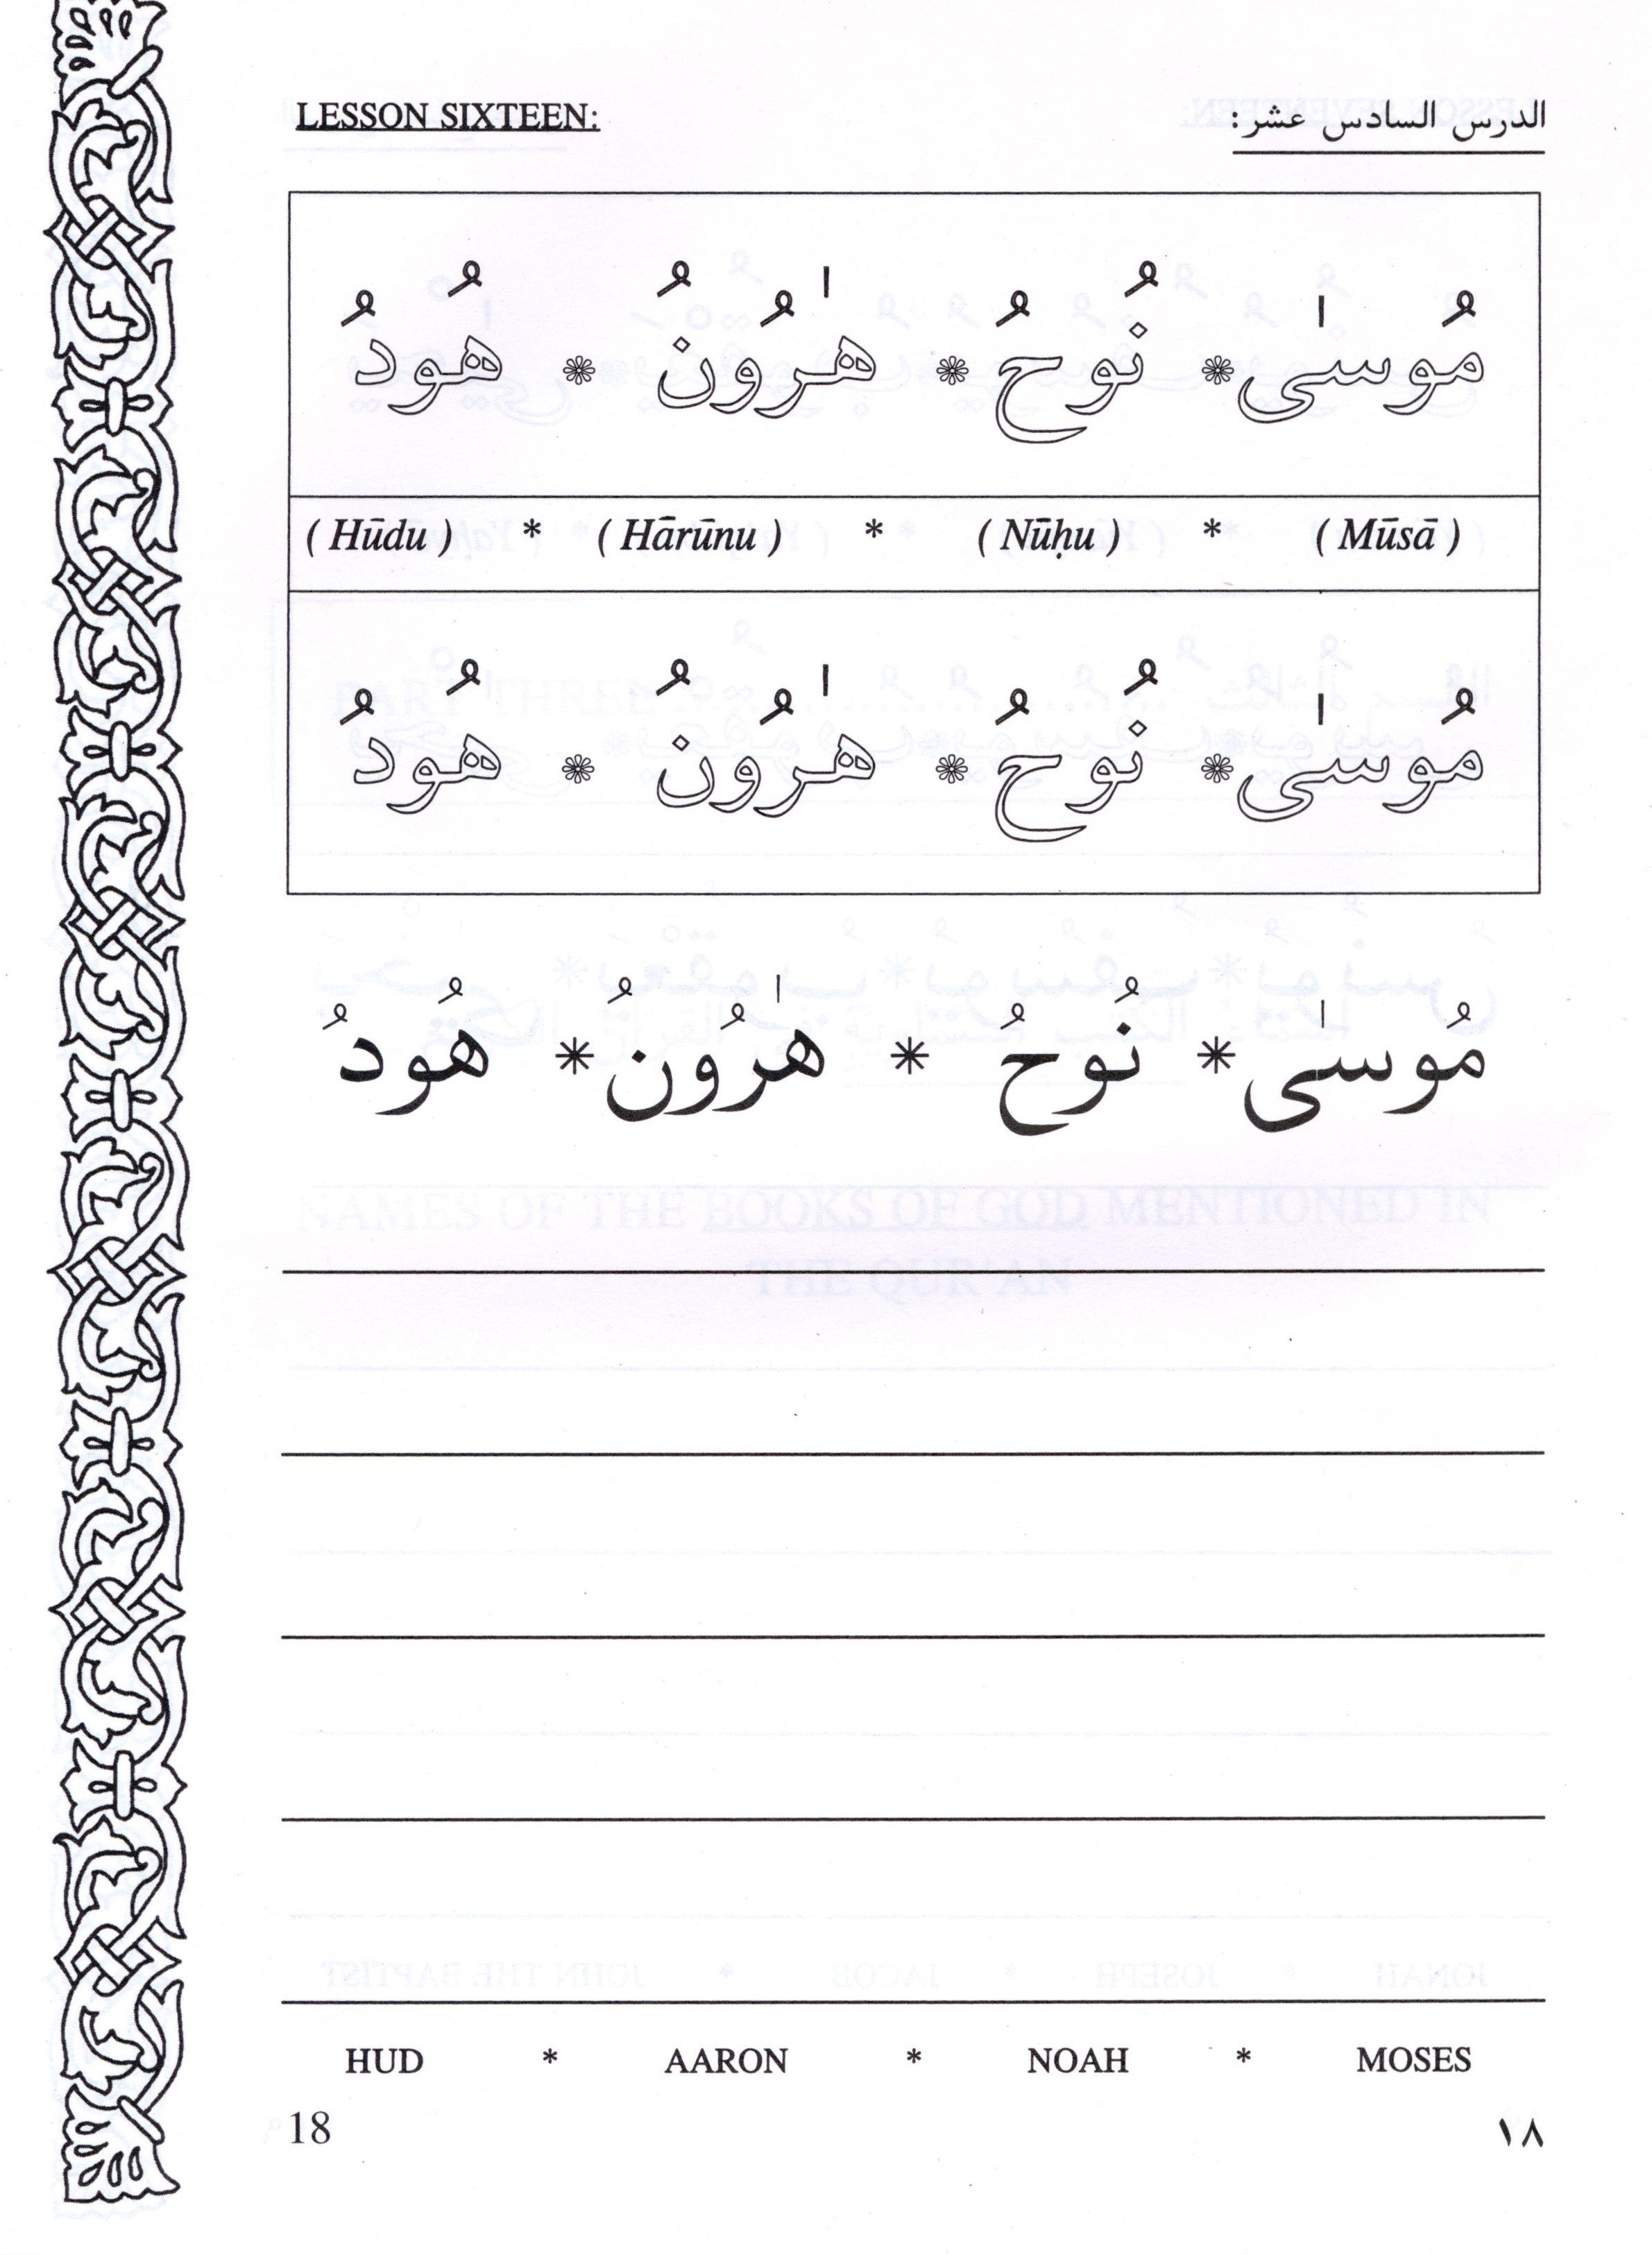 LESSON SIXTEEN: الدرس السادس عشر:
مُوسىٰ * نُوحُ * هٰرُونُ * هُودُ
( Hūdu ) * ( Hārūnu ) * ( Nūḥu ) * ( Mūsā )
مُوسىٰ * نُوحُ * هٰرُونُ * هُودُ
مُوسىٰ * نُوحُ * هٰرُونُ * هُودُ
HUD * AARON * NOAH * MOSES
18 ١٨